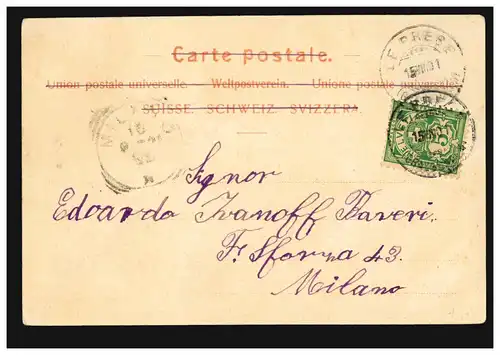 Carte postale.
Union postale universelle. Weltpostverein. Unione postale universale
SUISSE. SCHWEIZ. SVIZZERA
LE PRESE
Signor
Edoardo Ivanoff Daveri.
F. Sforza 43.
Milano